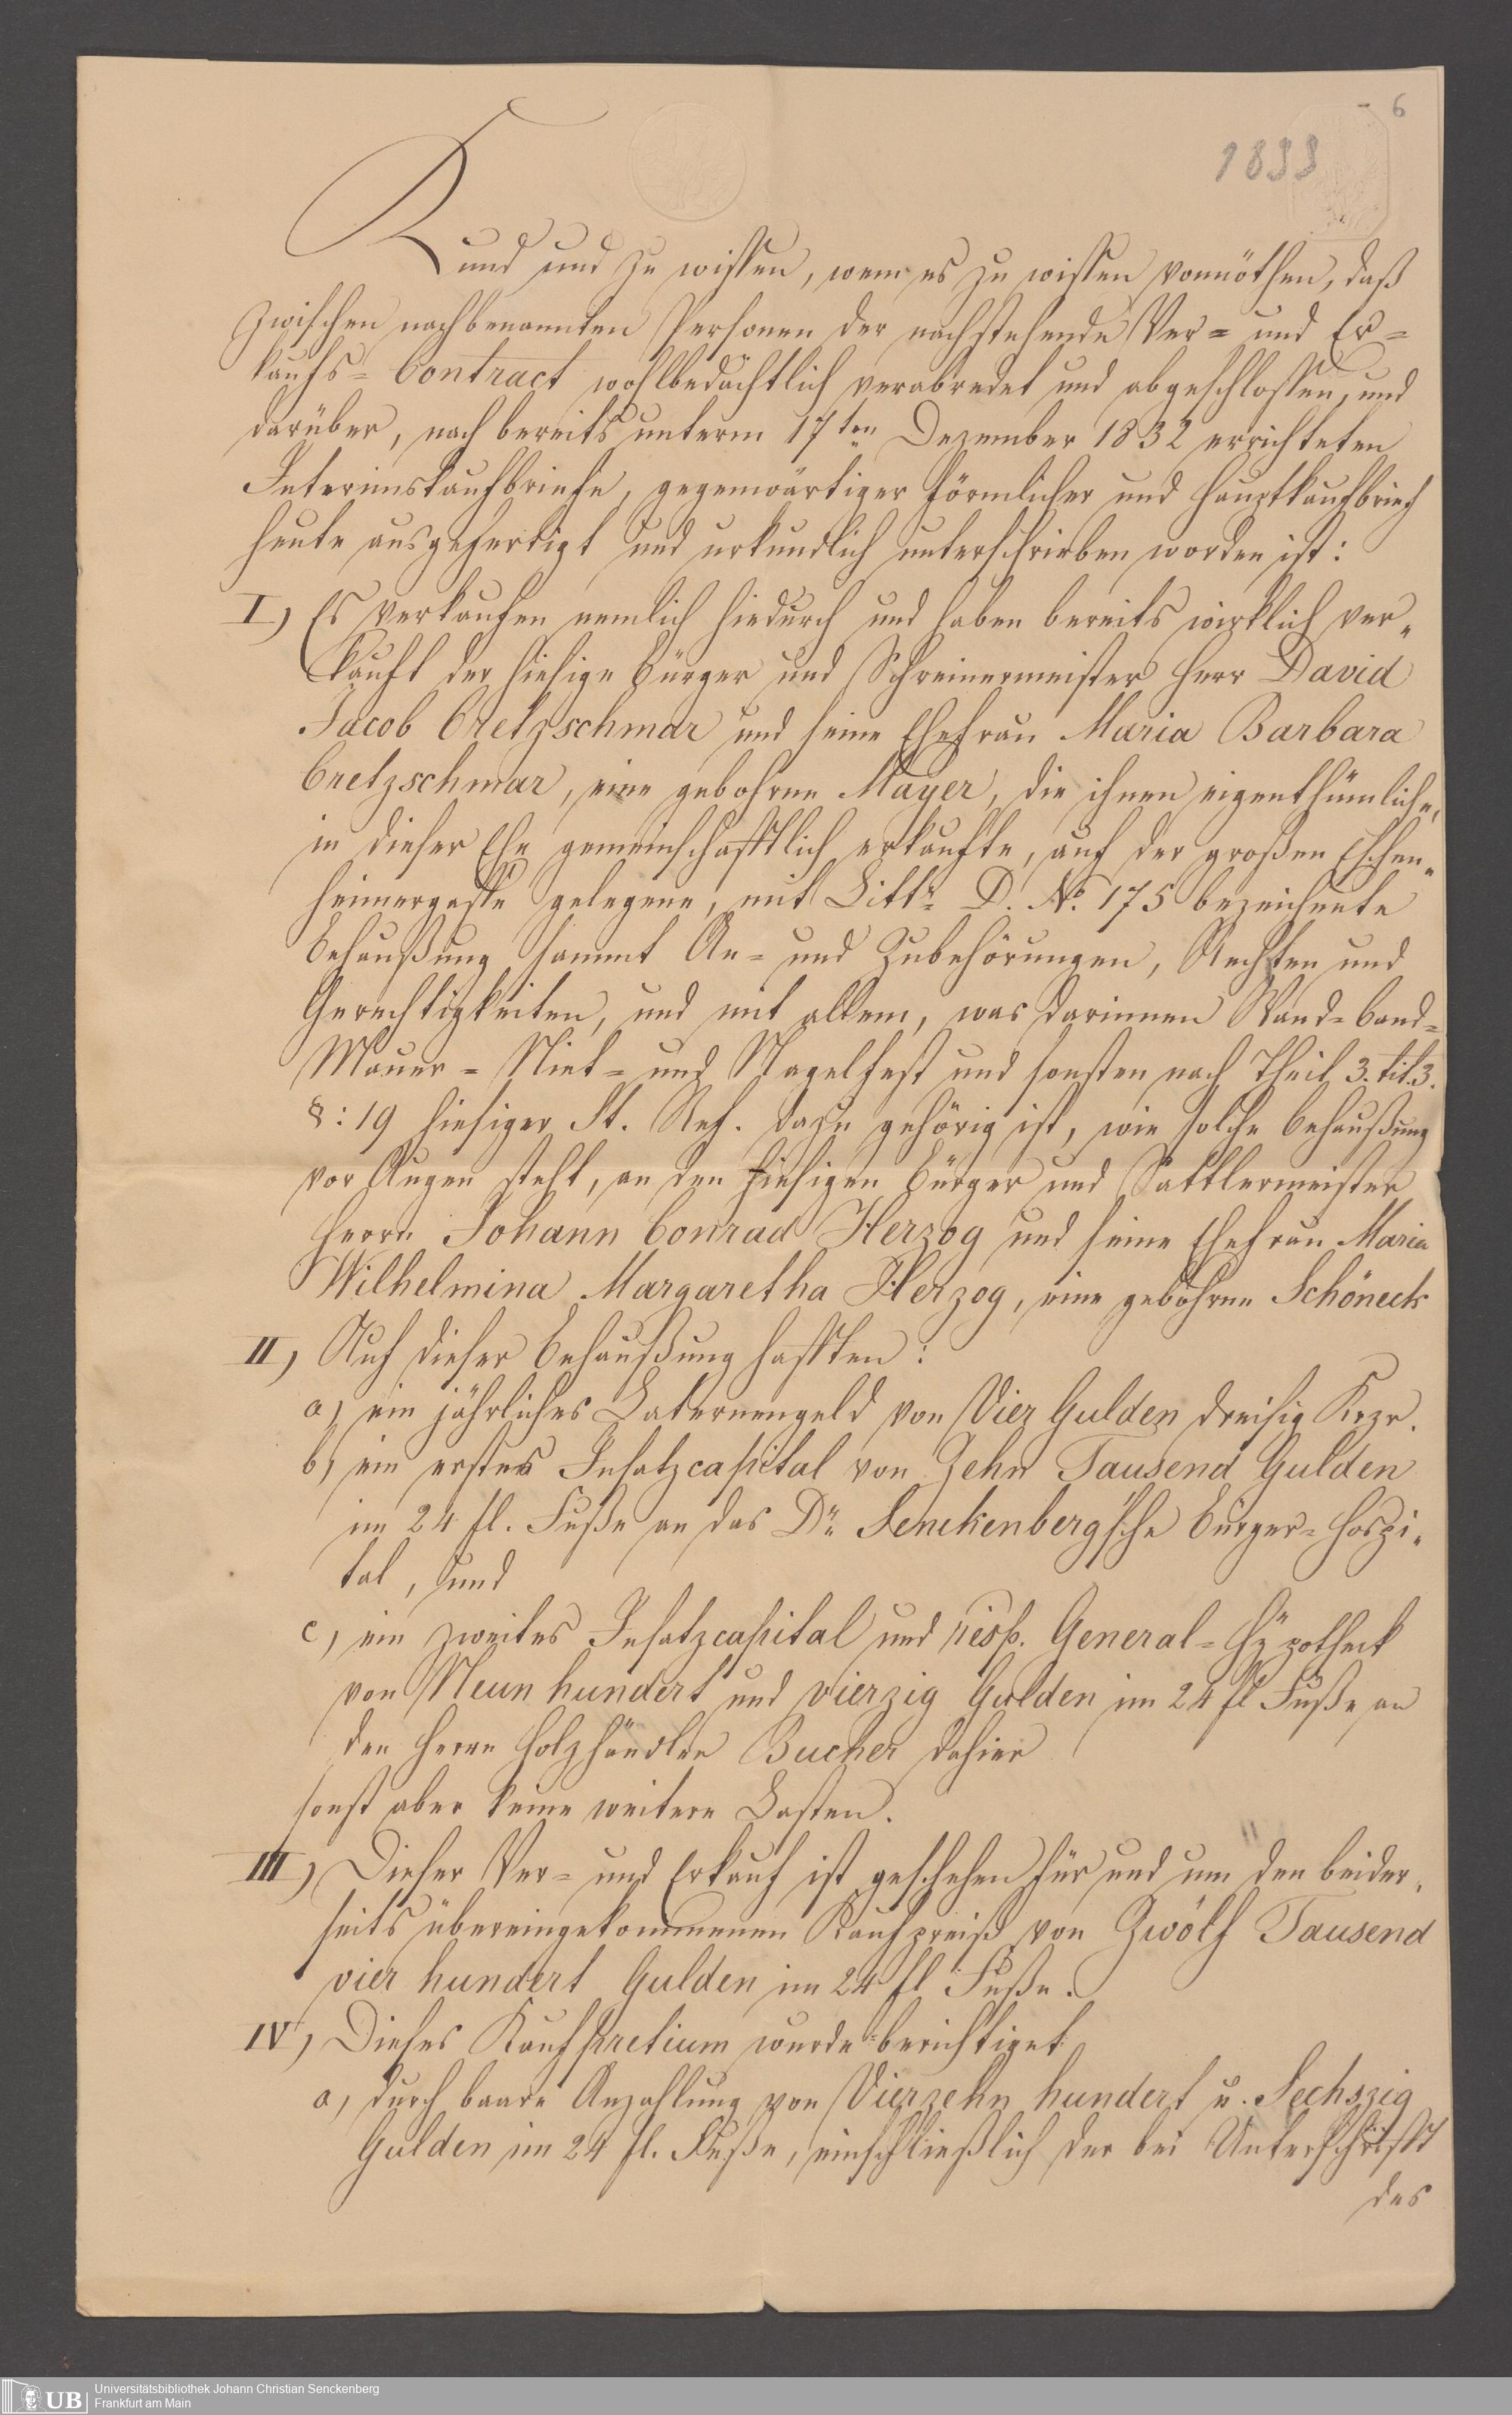 6
1833
Kund und zu wissen, wem es zu wissen vonnöthen, daß
zwischen nachbenannten Personen der nachstehende Ver= und Er=
kaufs=Contract wohlbedächtlich verabredet und abgeschlossen, und
darüber, nach bereits unterm 17ten Dezember 1832 errichteten
Interimskaufbriefe, gegenwärtiger förmlicher und Hauptkaufbrief
heute ausgefertigt und urkundlich unterschrieben worden ist:
I) Es verkaufen nemlich hiedurch und haben bereits wirklich ver=
kauft der hiesige Bürger und Schreinermeister Herr David
Jacob Cretzschmar und seine Ehefrau Maria Barbara
Cretzschmar, eine gebohrne Mayer, die ihnen eigenthümliche,
in dieser Ehe gemeinschafftlich erkaufte, auf der großen Eschen=
heimergasse gelegene, mit Littr. D. No. 175 bezeichnete
Behaußung sammt An= und Zubehörungen, Rechten und
Gerechtigkeiten, und mit allem, was darinnen Wand= Band=
Mauer= Niet= und Nagelfest und sonsten nach Theil 3. tit. 3.
§: 19 hiesiger St. Ref. dazu gehörig ist, wie solche Behaußung
vor Augen steht, an den hiesigen Bürger und Sattlermeister
Herrn Johann Conrad Herzog und seine Ehefrau Maria
Wilhelmina Margaretha Herzog, eine gebohrne Schöneck
II) Auf dieser Behaußung hafften:
a) ein jährliches Laternengeld von Vier Gulden dreisig Krzr.
b) ein erstes Insatzcapital von Zehn Tausend Gulden
im 24 fl. Fuße an das Dr. Senckenberg'sche Bürger=Hospi=
tal, und
c) ein zweites Insatzcapital und resp. General=Hypotheck
von Neun hundert und vierzig Gulden im 24 fl Fuße an
den Herrn Holzhändler Bucher dahier
sonst aber keine weitere Lasten.
III) Dieser Ver= und Erkauf ist geschehen für und um den beider=
seits übereingekommenen Kaufpreiß von Zwölf Tausend
vier hundert Gulden im 24 fl Fuße.
IV) Dieses Kaufpretium wurde berichtiget
a) durch baare Anzahlung von Vierzehn hundert u. Sechszig
Gulden im 24 fl. Fuße, einschließlich der bei Unterschrifft
des
UB Universitätsbibliothek Johann Christian Senckenberg
Frankfurt am Main